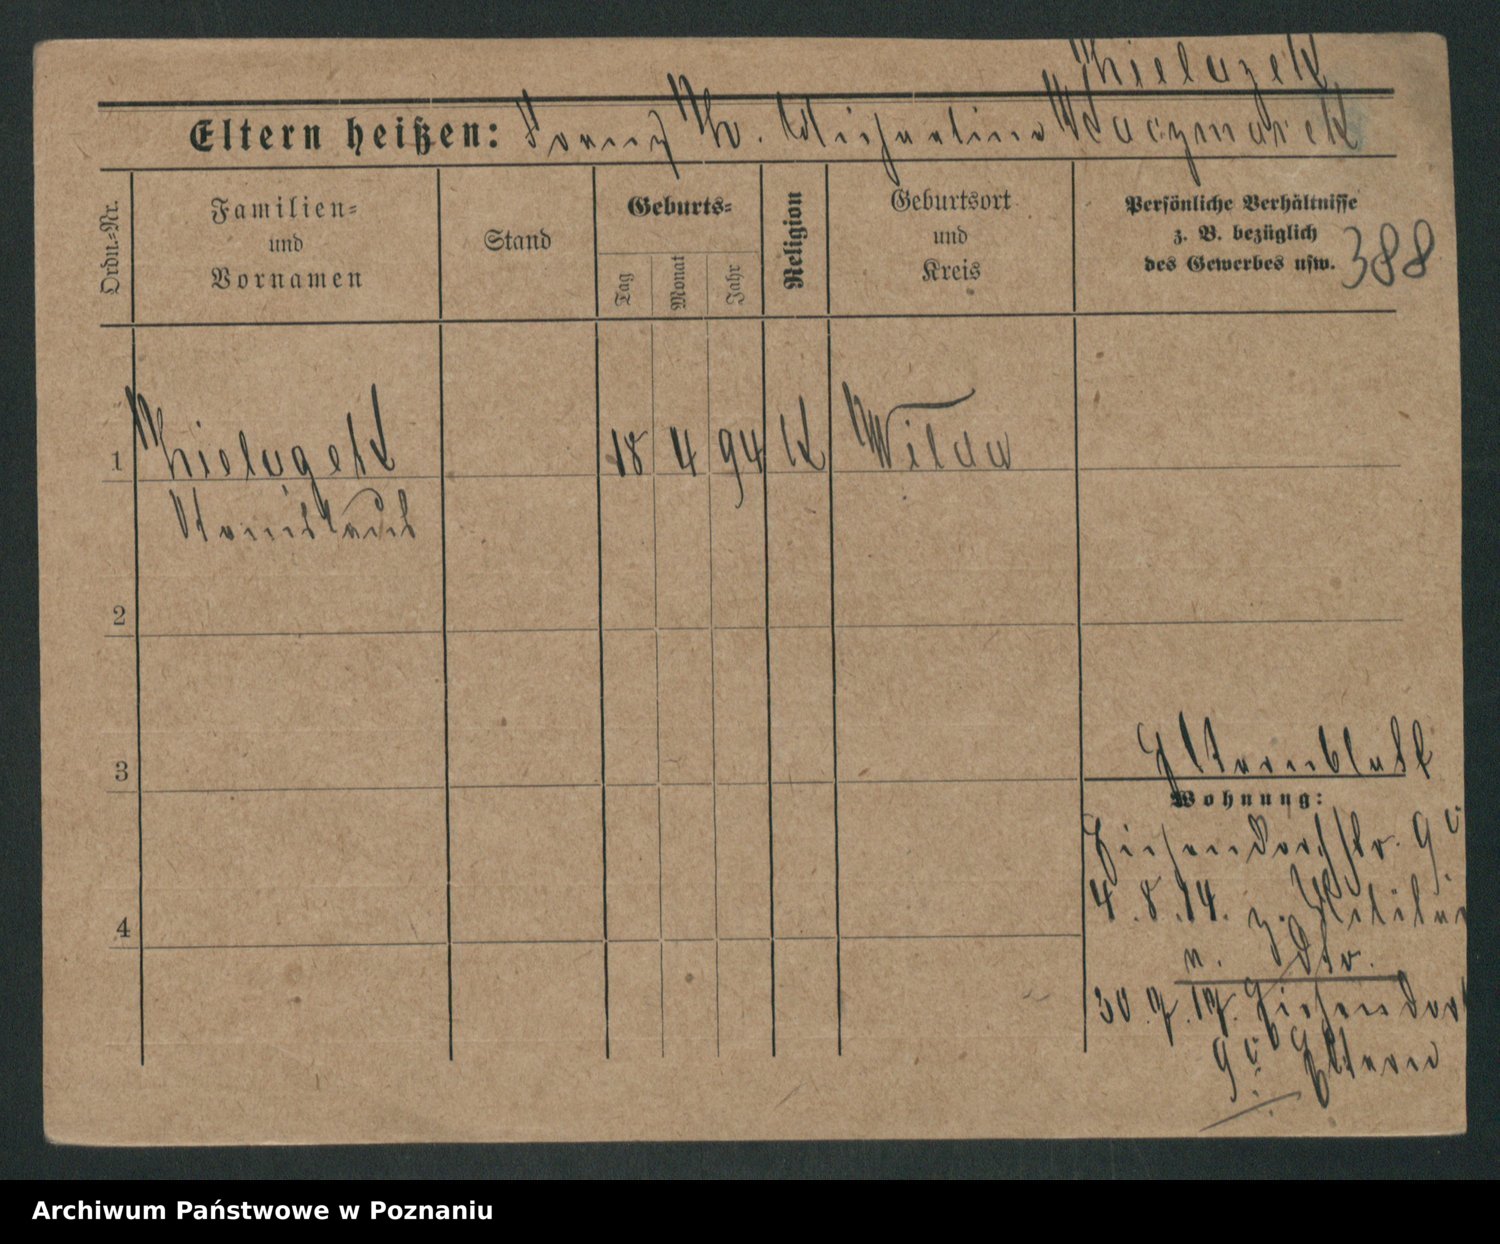 Thielazek
Eltern heißen: Franz Th. Michaelina Kaczmarek
Ordn.-Nr.
Familien-
und
Vornamen
Stand
Geburts-
Tag
Monat
Jahr
Religion
Geburtsort
und
Kreis
Persönliche Verhältnisse
z. B. bezüglich
des Gewerbes usw.
388
1 18 4 94 K Wilda
Stanislaus
2
3
Elternblatt
Wohnung:
4.8.14. z. Militär
4
30.7.17.
Eltern
Archiwum Państwowe w Poznaniu